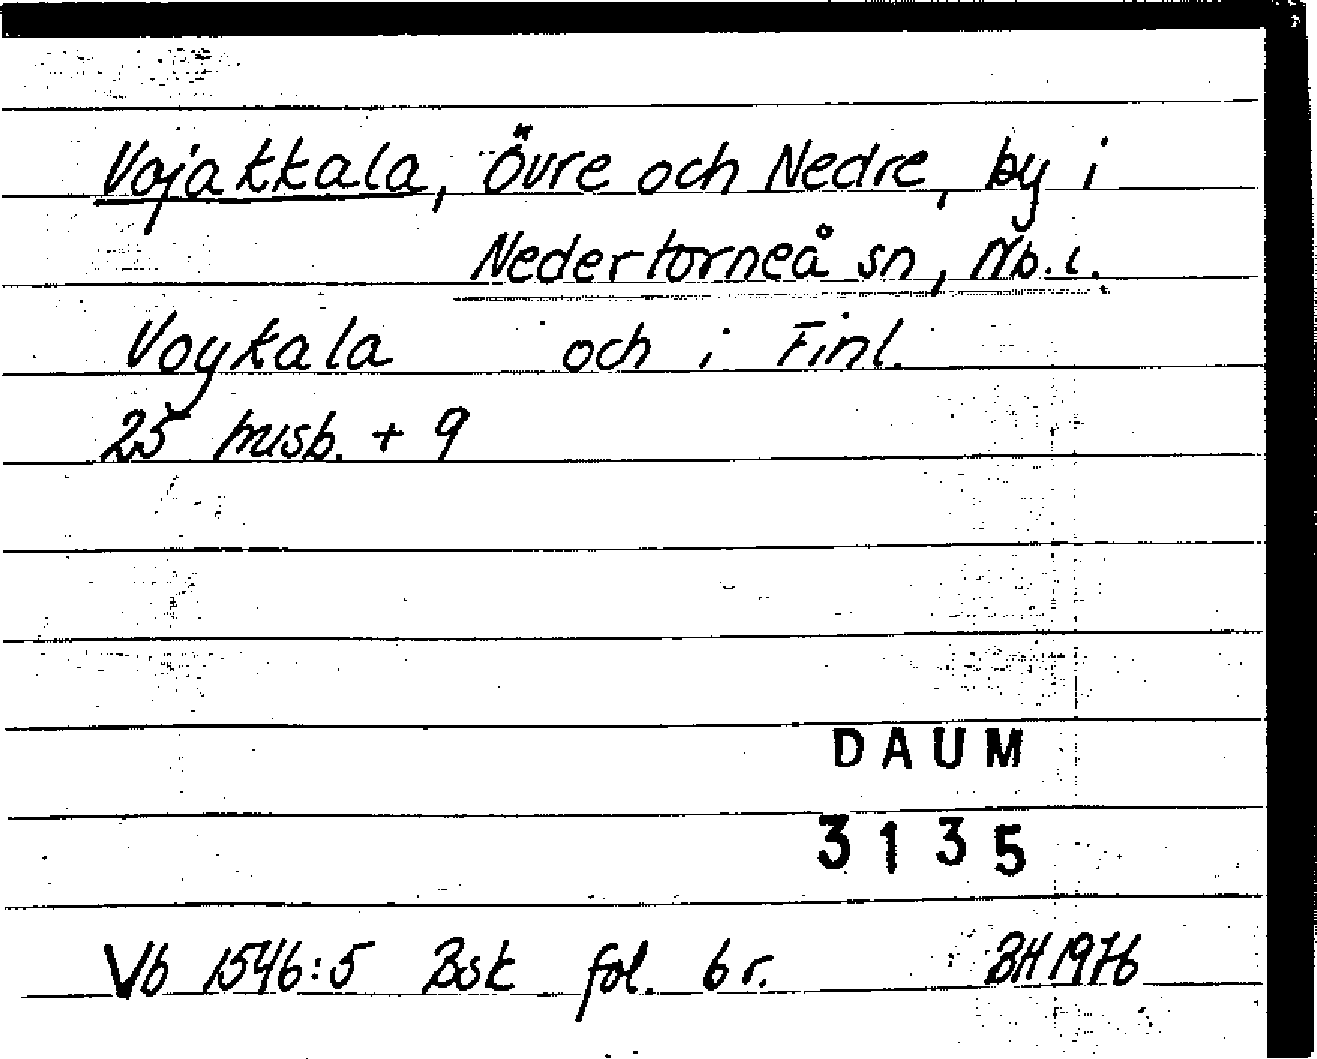 Vojakkala, Övre och Nedre, by i
Nedertorneå sn, Nb.l.
Voykala och i Finl.
25 husb. + 9
DAUM
3135
Vb 1546:5 Bsk fol. 6 r. BH 1976